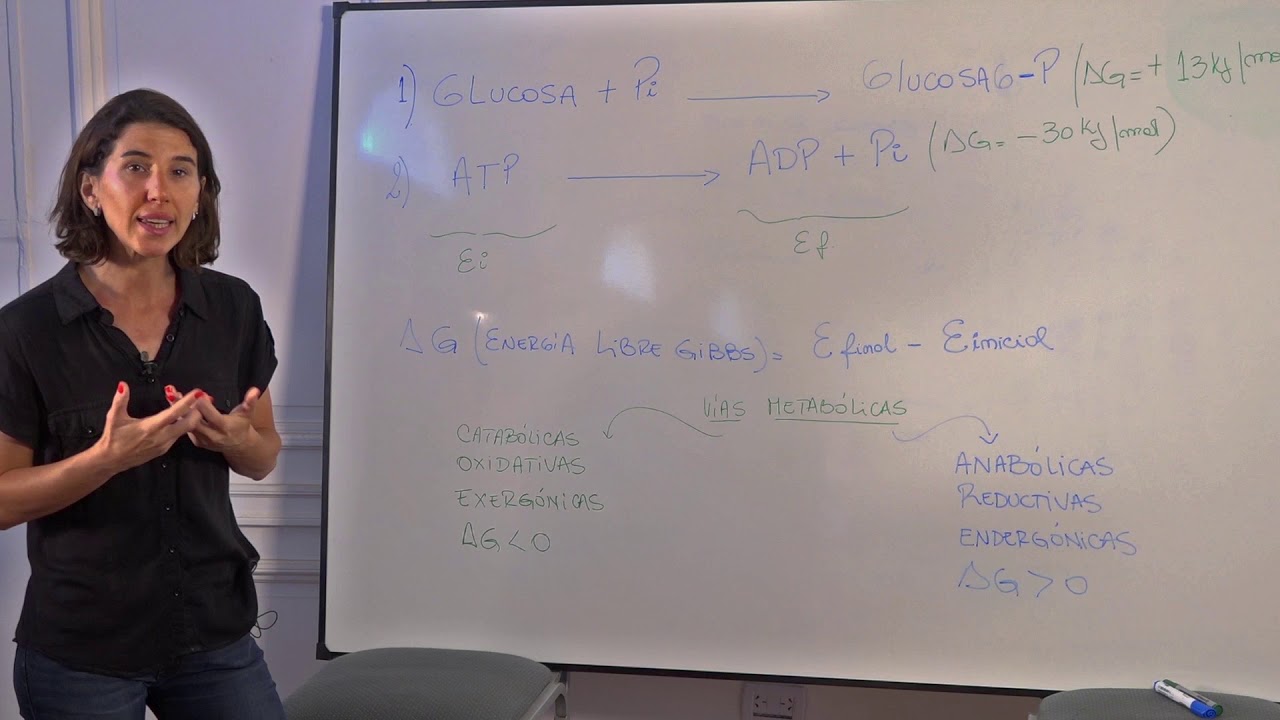 1) GLUCOSA + Pi → GLUCOSA 6-P (ΔG = + 13 KJ/mol
2) ATP → ADP + Pi (ΔG = - 30 KJ/mol)
Ei Ef
ΔG (ENERGÍA LIBRE GIBBS) = E final - E inicial
VÍAS METABÓLICAS
CATABÓLICAS
OXIDATIVAS
EXERGÓNICAS
ΔG < 0
ANABÓLICAS
REDUCTIVAS
ENDERGÓNICAS
ΔG > 0